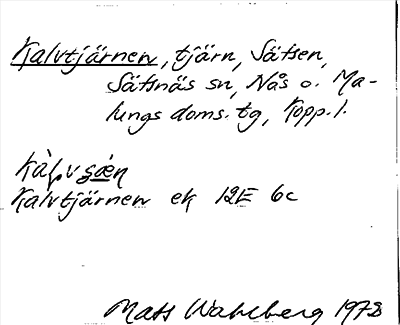 Kalvtjärnen, tjärn, Sätsen,
Säfsnäs sn, Nås o. Ma-
lungs doms. tg, Kopp. l.
Kalvtjärnen ek 12E 6c
Mats Wahlberg 1978